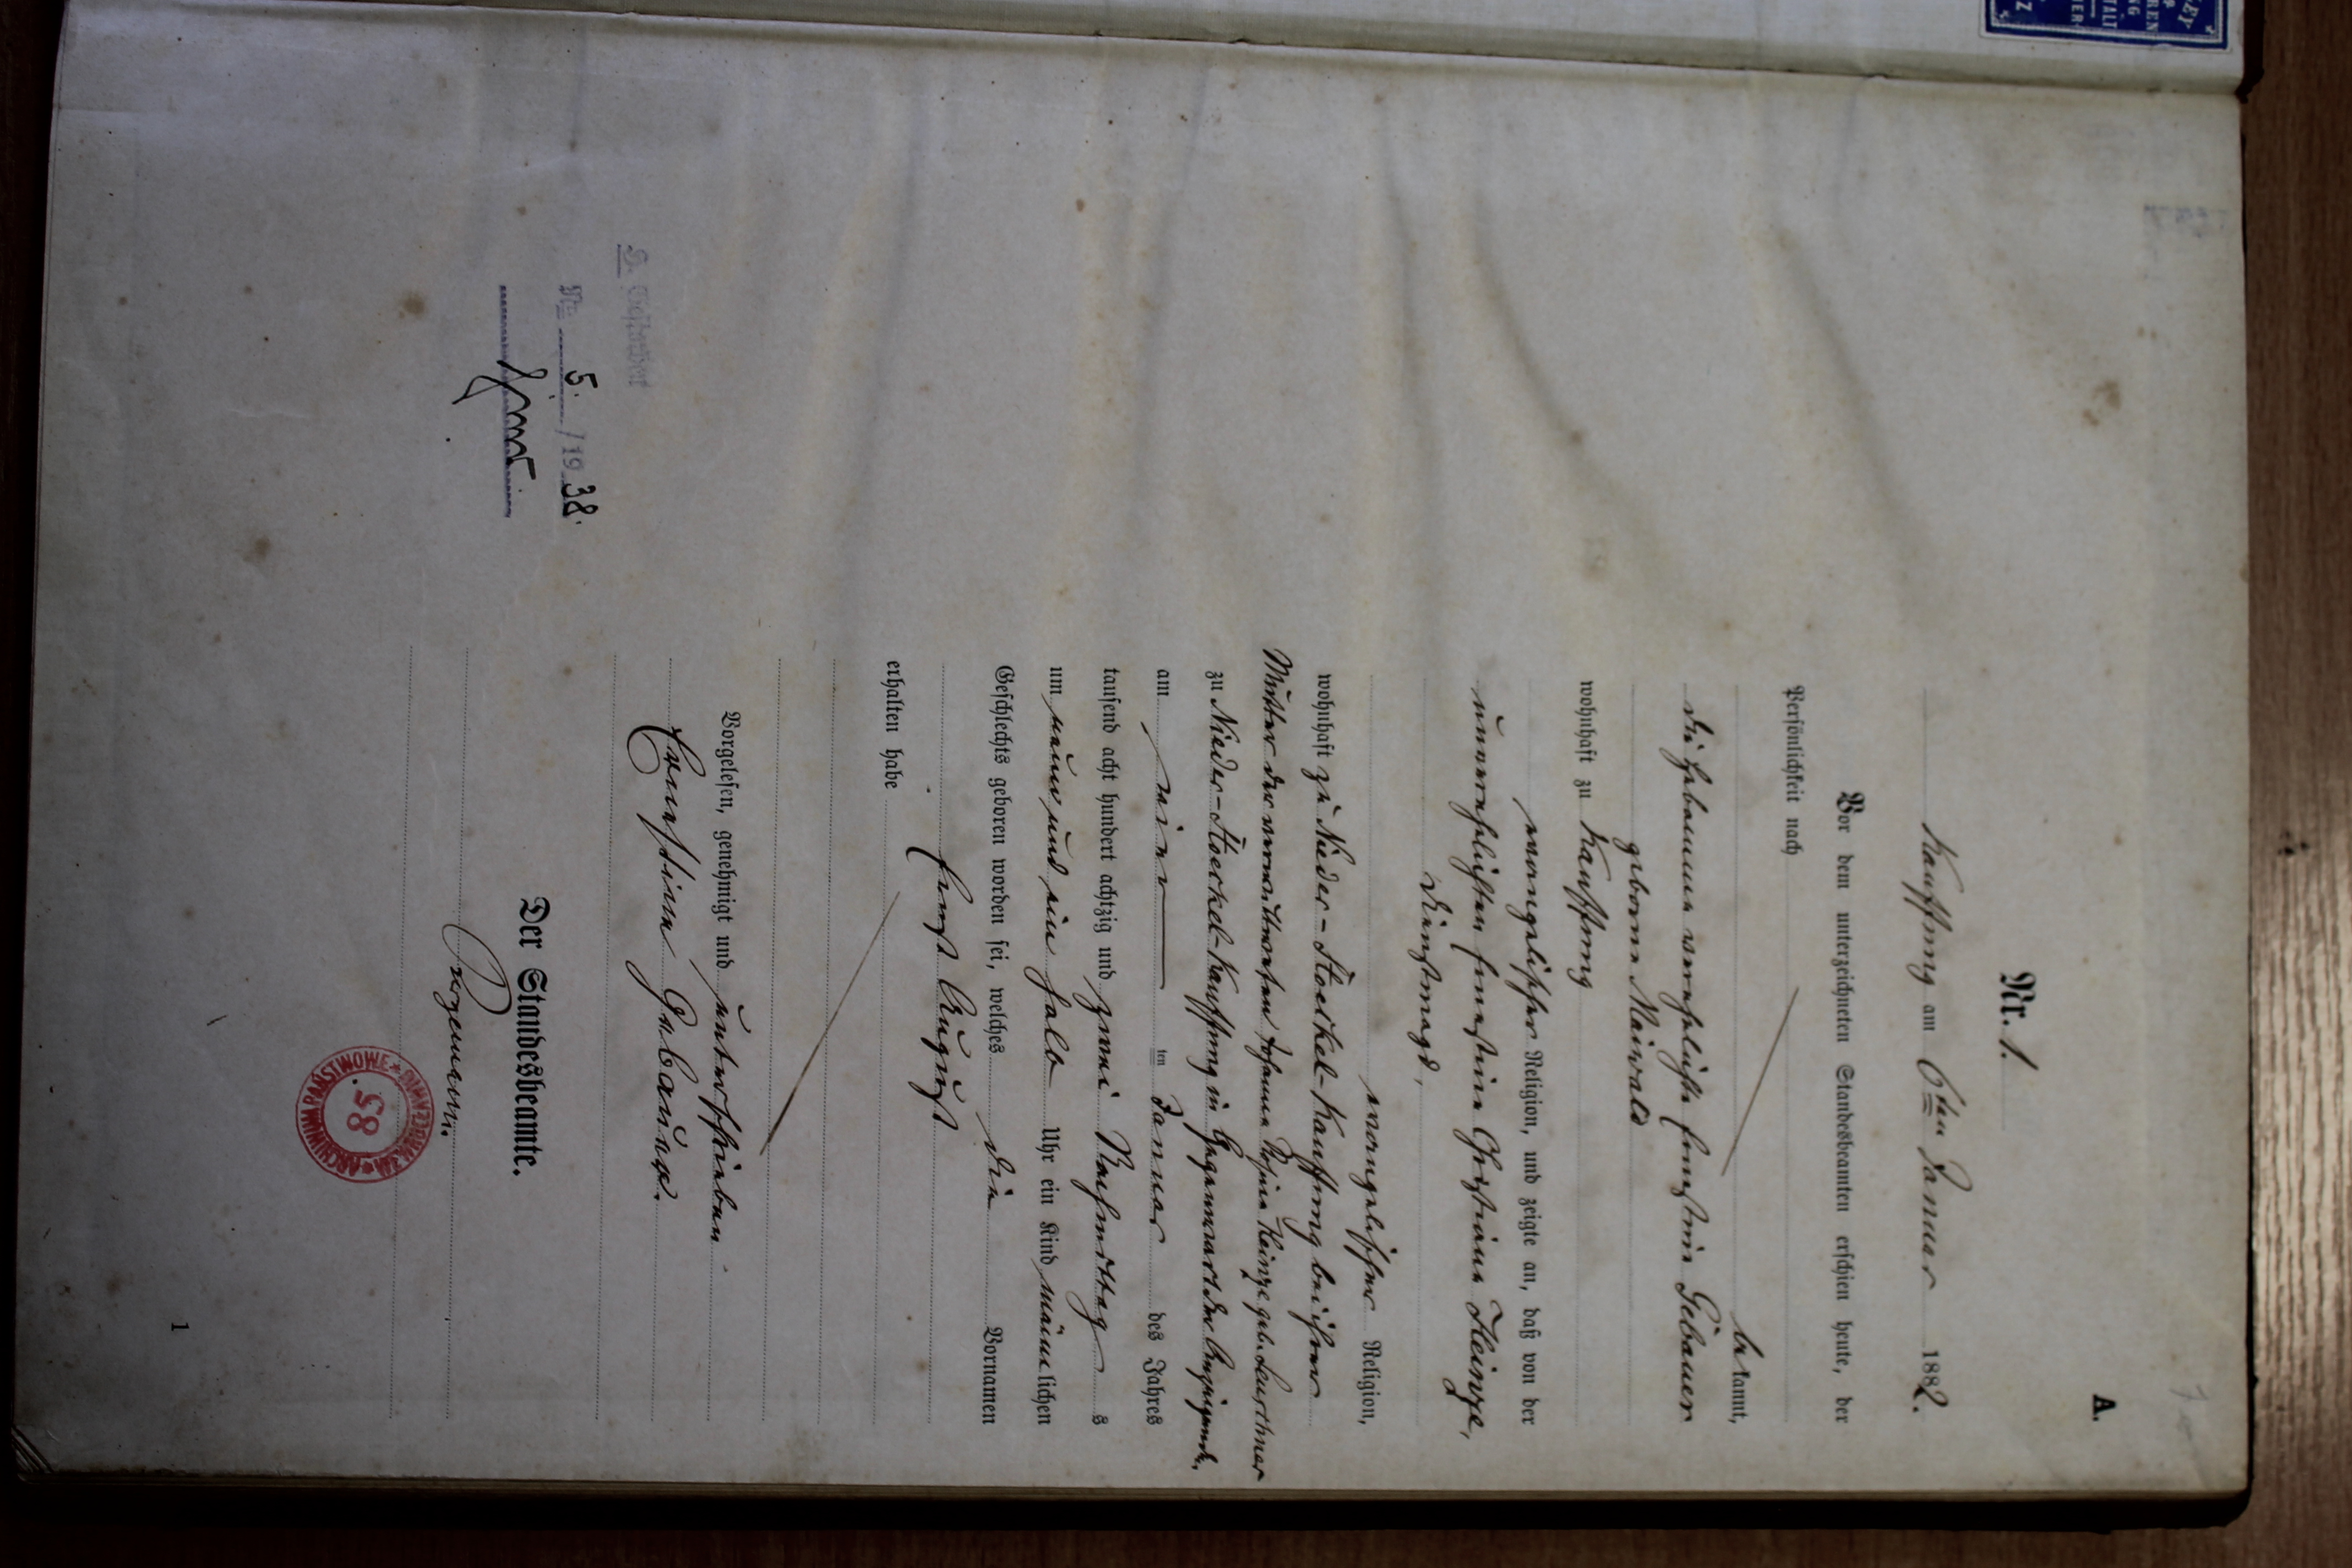 A.
Nr. 1.
Kauffung am 6ten Januar 1882.
Vor dem unterzeichneten Standesbeamten erschien heute, der
Persönlichkeit nach
bekannt,
die Hebamme verehelichte Ernestine Gebauer
geborne Maiwald
wohnhaft zu Kauffung
evangelischer Religion, und zeigte an, daß von der
unverehelichten Ernestine Christiane Heinze,
Dienstmagd,
evangelischer Religion,
wohnhaft zu Nieder-Stoeckel-Kauffung bei ihrer
Mutter der verwittweten Johanne Rosine Heinze geb. Leuschner
zu Nieder-Stoeckel-Kauffung in Gegenwart der Anzeigende,
am vier ten Januar des Jahres
tausend acht hundert achtzig und zwei Nachmittag s
um neun und ein halb Uhr ein Kind männlichen
Geschlechts geboren worden sei, welches die Vornamen
Ernst August
erhalten habe
Vorgelesen, genehmigt und unterschrieben
Ernestine Gebauer.
Der Standesbeamte.
№ 5. / 19 38.
ARCHIWUM PAŃSTWOWE
85
1